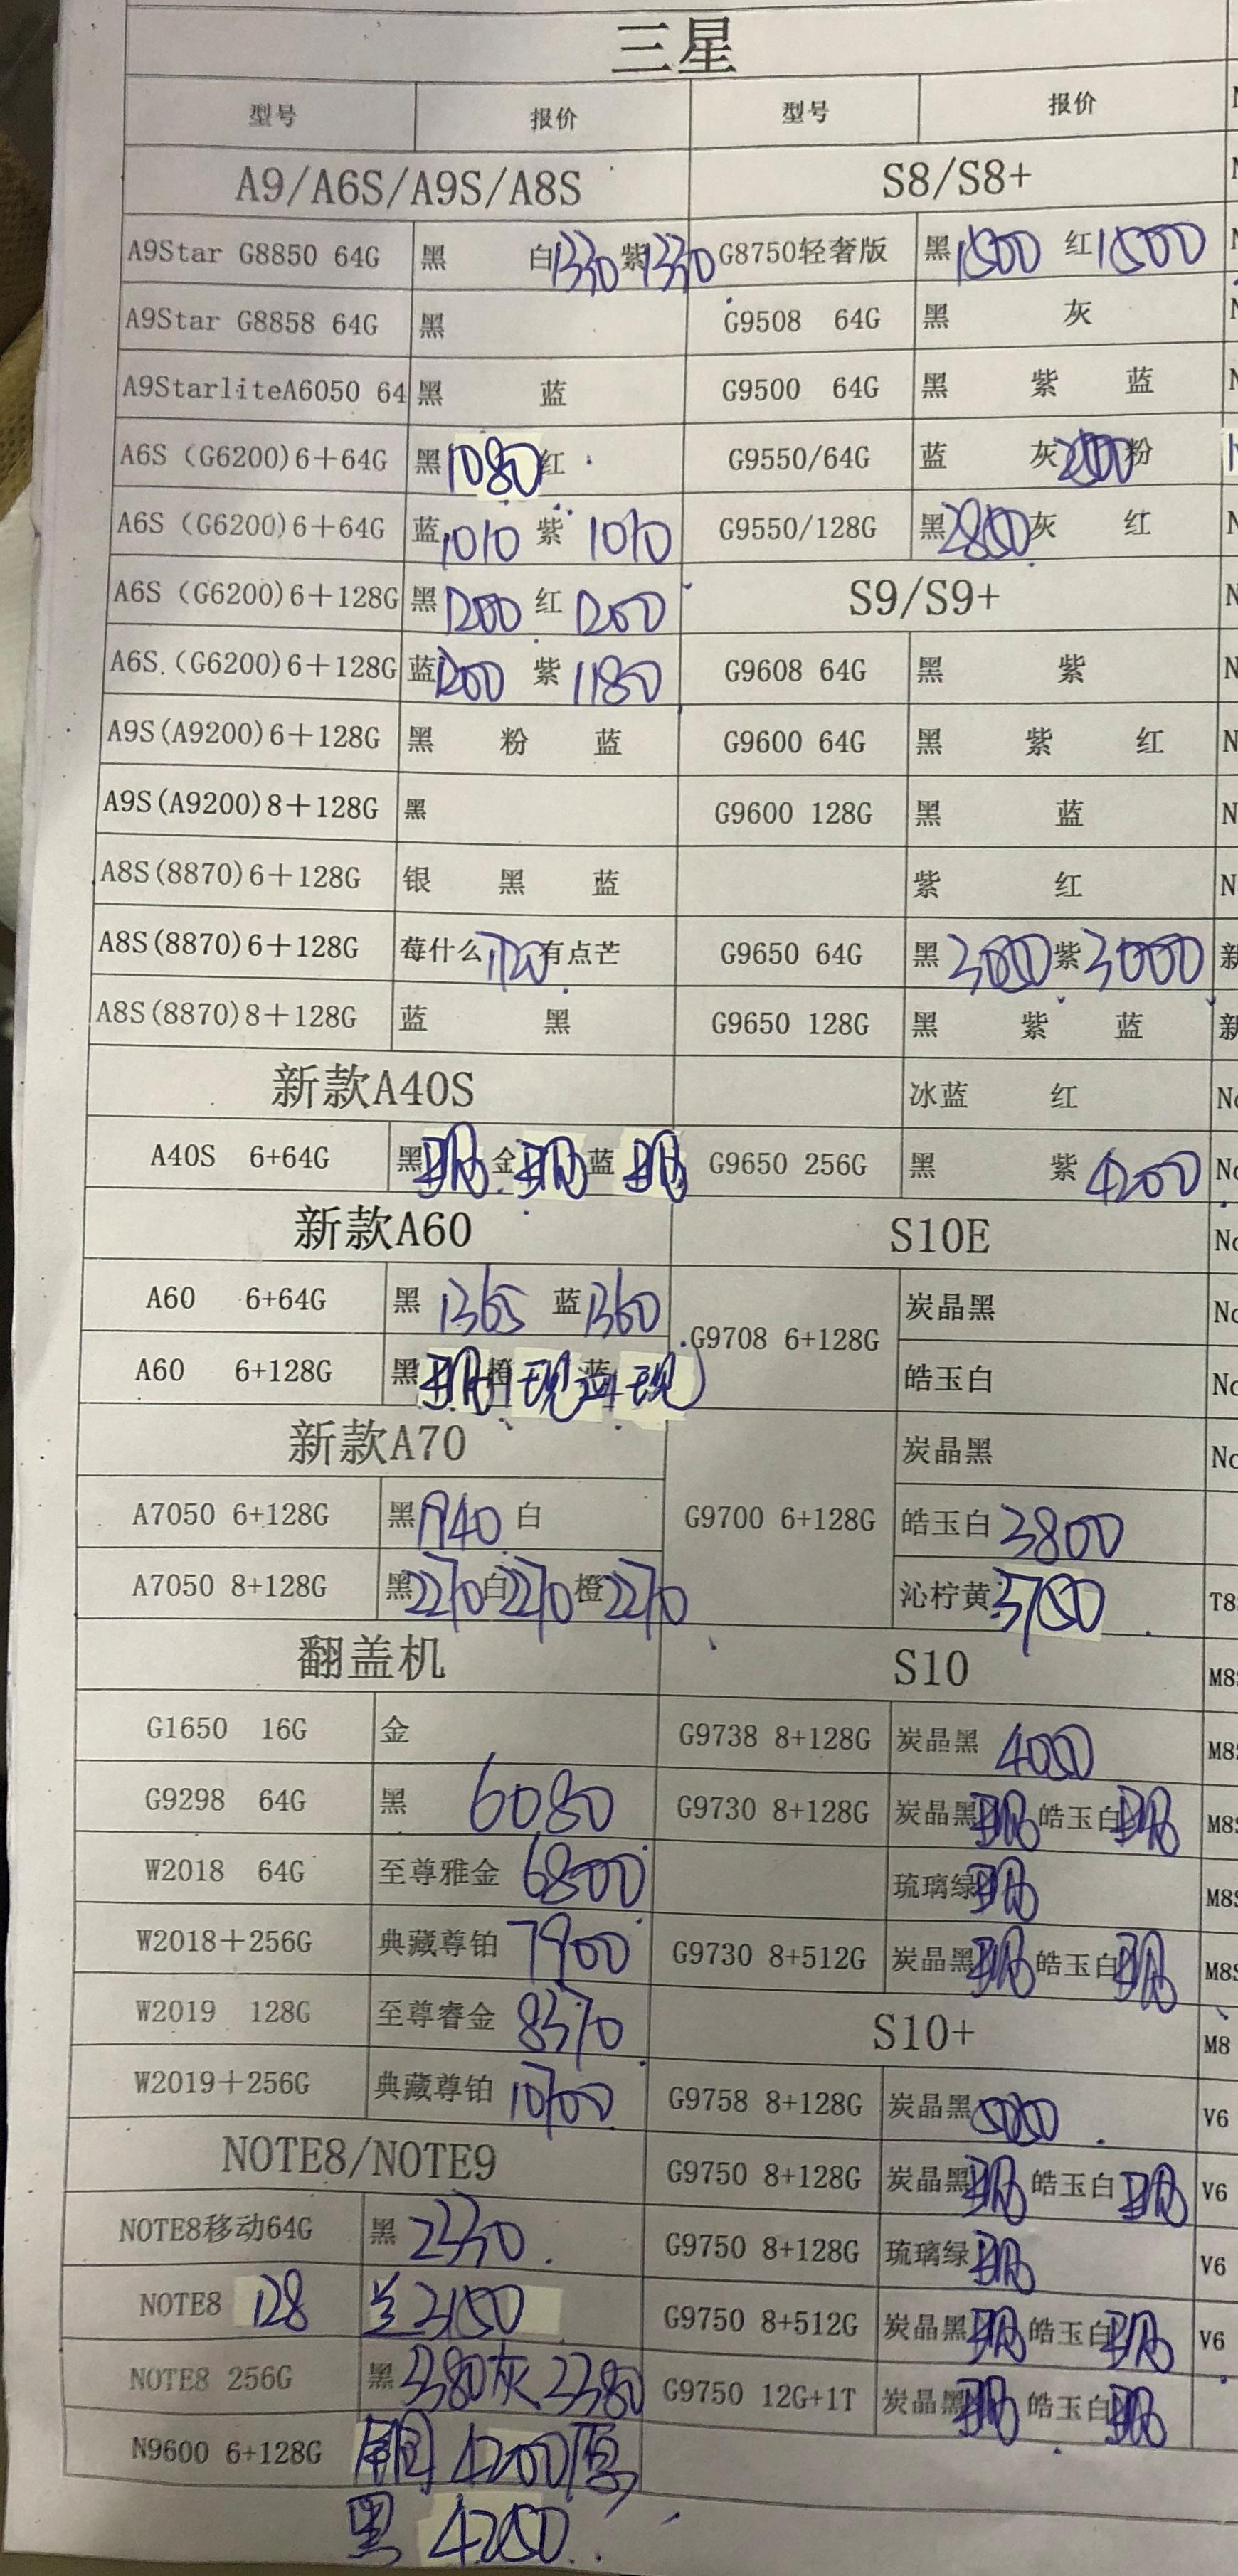 三星
型号 报价 型号 报价
A9/A6S/A9S/A8S S8/S8+
A9Star G8850 64G 黑 白1330 紫1330 G8750轻奢版 黑1500 红1500
A9Star G8858 64G 黑 G9508 64G 黑 灰
A9StarliteA6050 64 黑 蓝 G9500 64G 黑 紫 蓝
A6S (G6200)6+64G 黑1080 红 G9550/64G 蓝 灰 粉
A6S (G6200)6+64G 蓝1010 紫1010 G9550/128G 黑2800 灰 红
A6S (G6200)6+128G 黑1200 红1200 S9/S9+
A6S.(G6200)6+128G 蓝1200 紫1180 G9608 64G 黑 紫
A9S(A9200)6+128G 黑 粉 蓝 G9600 64G 黑 紫 红
A9S(A9200)8+128G 黑 G9600 128G 黑 蓝
A8S(8870)6+128G 银 黑 蓝 紫 红
A8S(8870)6+128G 莓什么 有点芒 G9650 64G 黑3000 紫3000
A8S(8870)8+128G 蓝 黑 G9650 128G 黑 紫 蓝
新款A40S 冰蓝 红
A40S 6+64G 黑现 金现 蓝现 G9650 256G 黑 紫4200
新款A60 S10E
A60 6+64G 黑1365 蓝1360 G9708 6+128G 炭晶黑
A60 6+128G 黑现 橙现 蓝现 皓玉白
新款A70 炭晶黑
A7050 6+128G 黑1940 白 G9700 6+128G 皓玉白3800
A7050 8+128G 黑2270 白2270 橙2270 沁柠黄3780
翻盖机 S10
G1650 16G 金 G9738 8+128G 炭晶黑4000
G9298 64G 黑 6080 G9730 8+128G 炭晶黑现 皓玉白现
W2018 64G 至尊雅金6800 琉璃绿现
W2018+256G 典藏尊铂7900 G9730 8+512G 炭晶黑现 皓玉白现
W2019 128G 至尊睿金8370 S10+
W2019+256G 典藏尊铂10700 G9758 8+128G 炭晶黑
NOTE8/NOTE9 G9750 8+128G 炭晶黑现 皓玉白现
NOTE8移动64G 黑2330 G9750 8+128G 琉璃绿现
NOTE8 128 兰3150 G9750 8+512G 炭晶黑现 皓玉白现
NOTE8 256G 黑3380 灰3380 G9750 12G+1T 炭晶黑现 皓玉白现
N9600 6+128G 铜4200原
黑4250